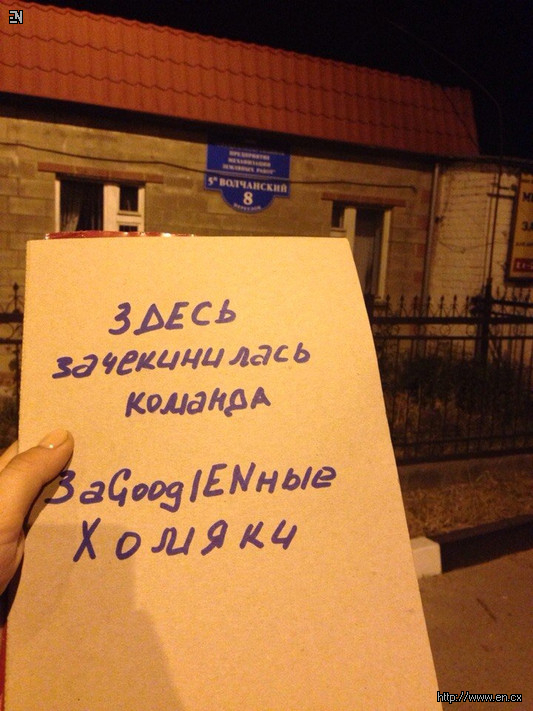 EN
ПРЕДПРИЯТИЕ
МЕХАНИЗАЦИИ
ЗЕМЛЯНЫХ РАБОТ"
5й ВОЛЧАНСКИЙ
8
ПЕРЕУЛОК
ЗДЕСЬ
зачекинилась
команда
ЗаGooglENные
Хомяки
http://www.en.cx